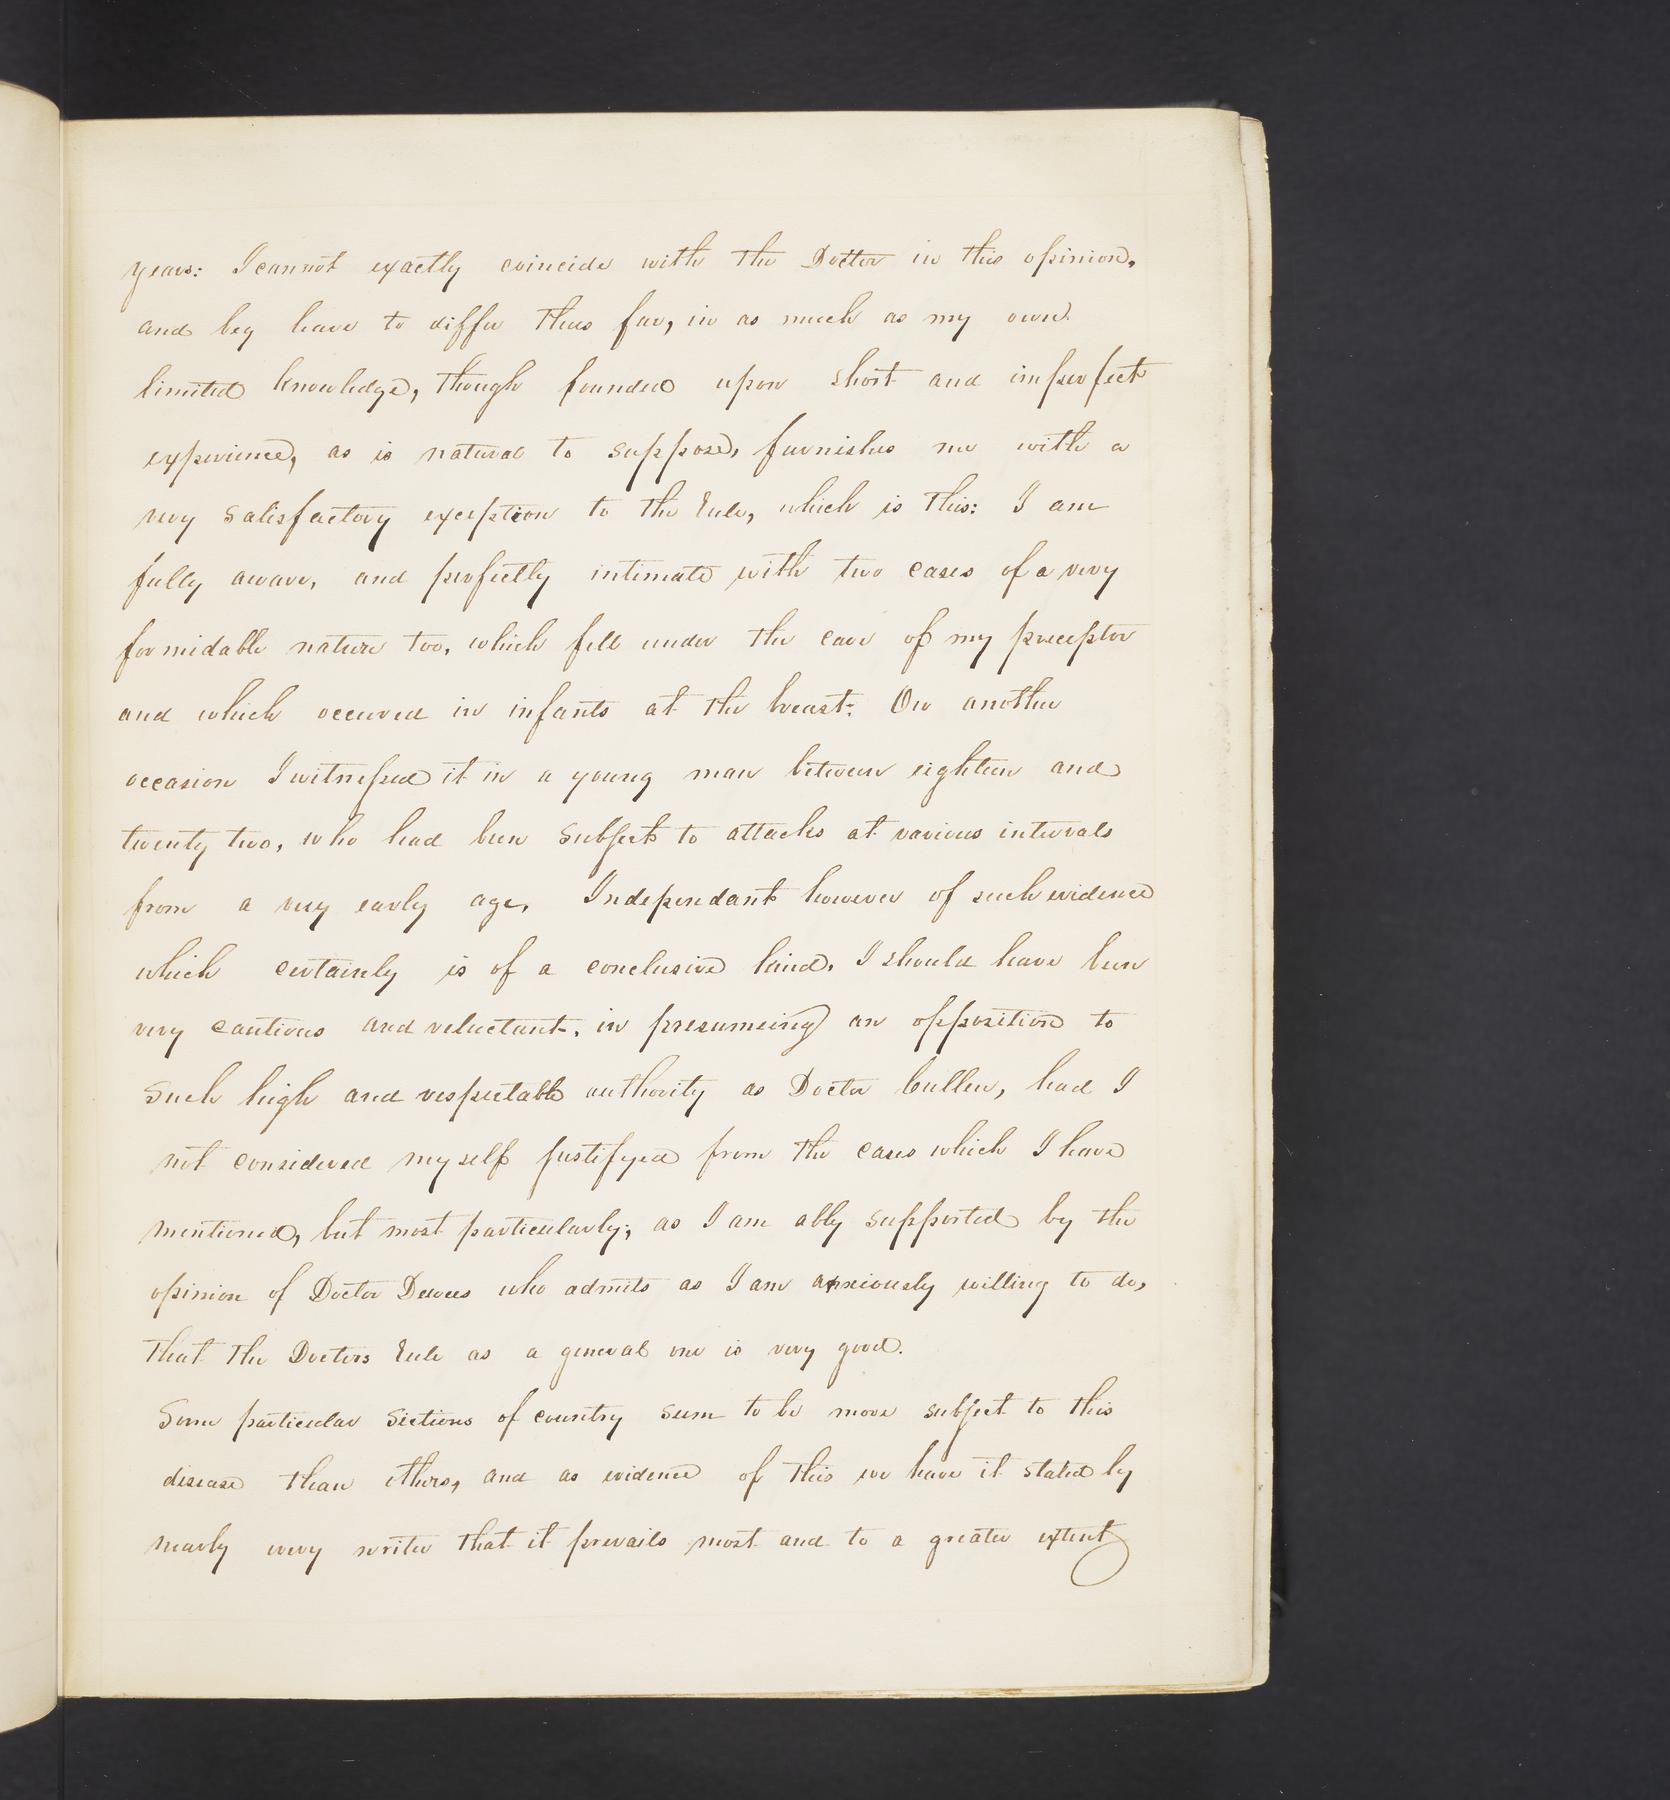 years: I cannot exactly coincide with the Doctor in this opinion,
and beg leave to differ thus far, in as much as my own
limited knowledge, though founded upon short and imperfect
experience, as is natural to suppose, furnishes me with a
very satisfactory exception to the rule, which is this: I am
fully aware, and perfectly intimate with two cases of a very
formidable nature too, which fell under the care of my preceptor
and which occured in infants at the breast: On another
occasion I witnessed it in a young man between eighteen and
twenty two, who had been subject to attacks at various intervals
from a very early age, Independant however of such evidence
which certainly is of a conclusive kind, I should have been
very cautious and reluctant, in presumeing an opposition to
such high and respectable authority as Doctor Cullen, had I
not considered myself justifyed from the cases which I have
mentioned, but most particularly; as I am ably supported by the
opinion of Doctor Dewees who admits as I am anxiously willing to do,
that the Doctors rule as a general one is very good.
Some particular sections of country seem to be more subject to this
disease than others, and as evidence of this we have it stated by
nearly every writer that it prevails most and to a greater extent